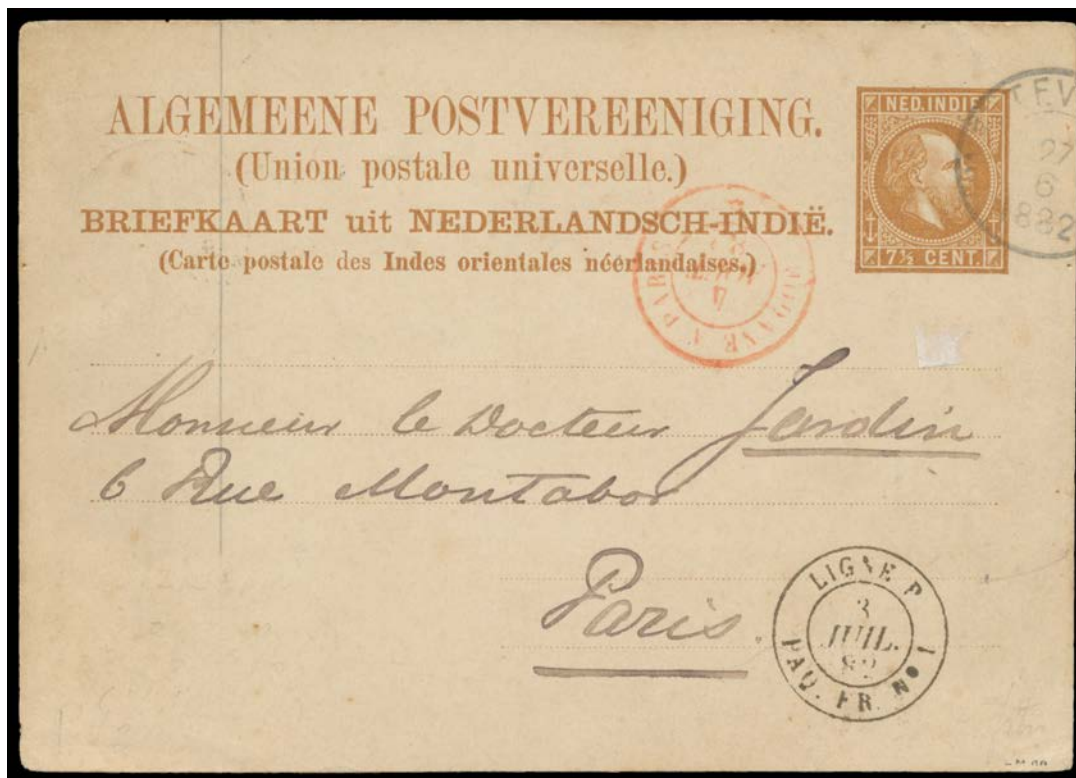 ALGEMEENE POSTVEREENIGING.
(Union postale universelle.)
BRIEFKAART uit NEDERLANDSCH-INDIË.
(Carte postale des Indes orientales néerlandaises.)
NED. INDIE
7½ CENT.
27
6
1882
PARIS
Monsieur le Docteur Jardin
6 Rue Montabor
Paris.
LIGNE P
3
JUIL.
82
PAQ. FR. No 1